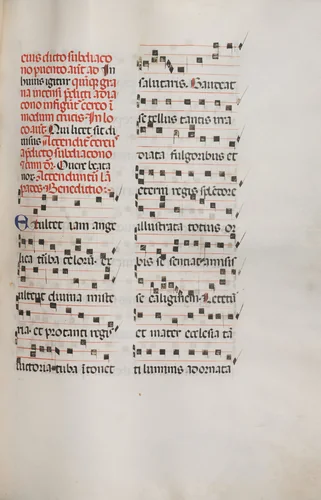 eius dicto subdiaco
no puento aut ad In
huius igitur quinque gra
na incensi predicti a dia
cono infigunt cereo i
modum crucis. In lo
co aut. Qui licet sit di
uisus Accenditur cereu
a predicto subdiacono
Apes Benedictio.
Exultet iam ange
lica tuba celorum. ex
ultent diuina miste
ria. et pro tanti regis
uictoria. tuba itonet
salutaris. Gaudeat
se tellus tantis irra
diata fulgoribus et
eterni regis splēdore
illustrata totius or
bis se sentiat amisis
se caliginem. Letetur
et mater ecclesia tā
ti luminis adornata